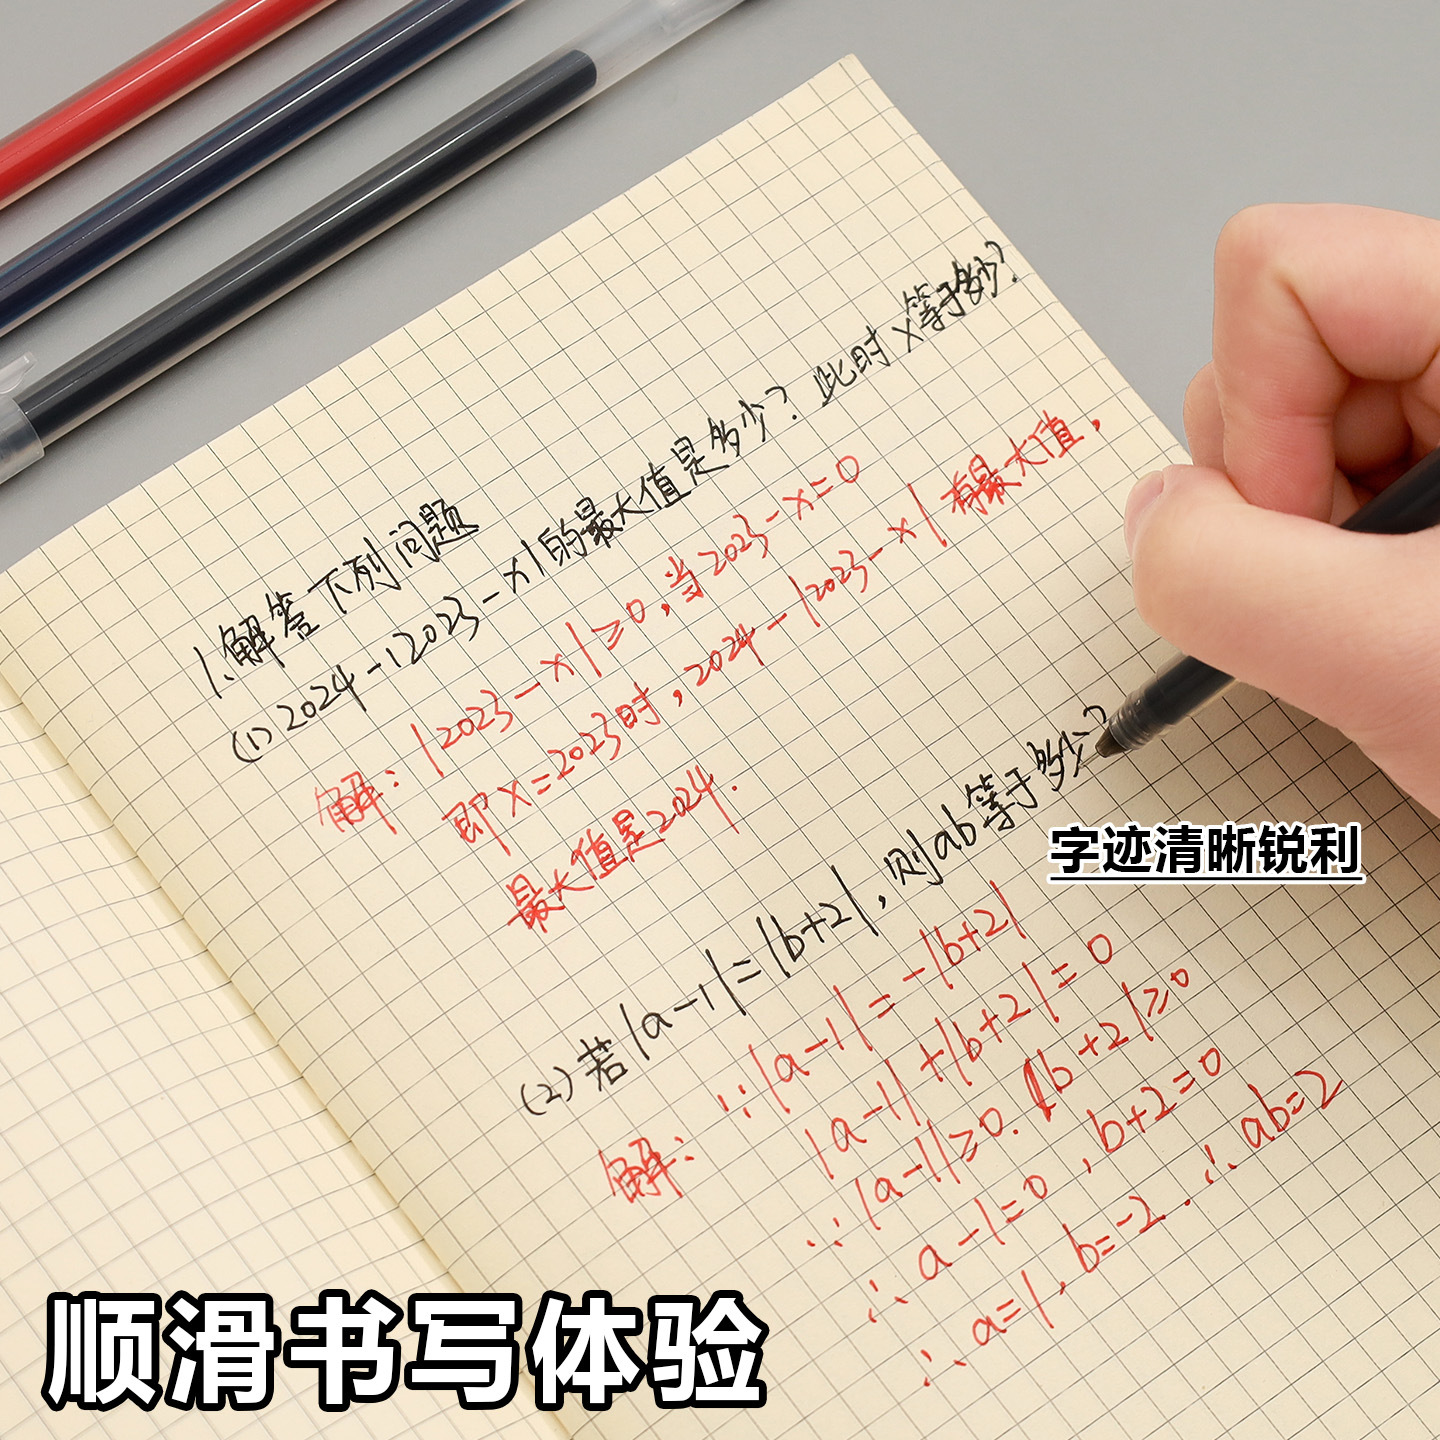 1.解答下列问题
(1)2024-|2023-x|的最大值是多少?此时x等于多少?
解:|2023-x|≥0,当2023-x=0
即x=2023时,2024-|2023-x|有最大值,
最大值是2024.
(2)若|a-1|=|b+2|,则ab等于多少?
字迹清晰锐利
解:∵|a-1|=-|b+2|
|a-1|+|b+2|=0
∵|a-1|≥0.|b+2|≥0
∴a-1=0,b+2=0
∴a=1,b=-2.∴ab=2
顺滑书写体验